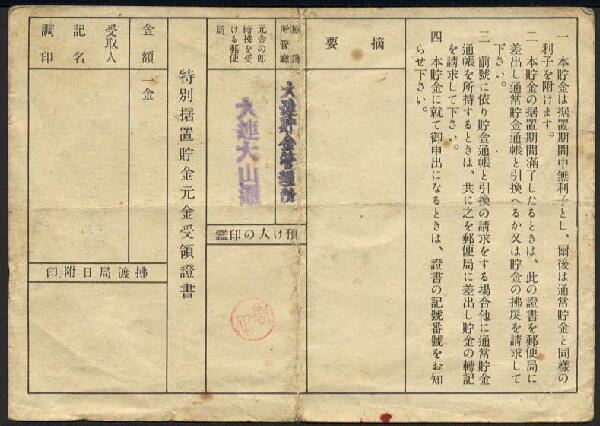 一 本貯金は据置期間中無利子とし、爾後は通常貯金と同様の
利子を附けます。
二 本貯金の据置期間滿了したるときは、此の證書を郵便局に
差出し通常貯金通帳と引換へるか又は貯金の拂戻を請求して
下さい。
三 前號に依り貯金通帳と引換の請求をする場合他に通常貯金
通帳を所持するときは、共に之を郵便局に差出し貯金の轉記
を請求して下さい。
四 本貯金に就て御申出になるときは、證書の記號番號をお知
らせ下さい。
摘要
大連貯金管理所
元金の卽
時拂を受
ける郵便
局
大連大山通
預け人の印鑑
特別据置貯金元金受領證書
金額
一金
拂渡局日附印
受取人
記名
調印